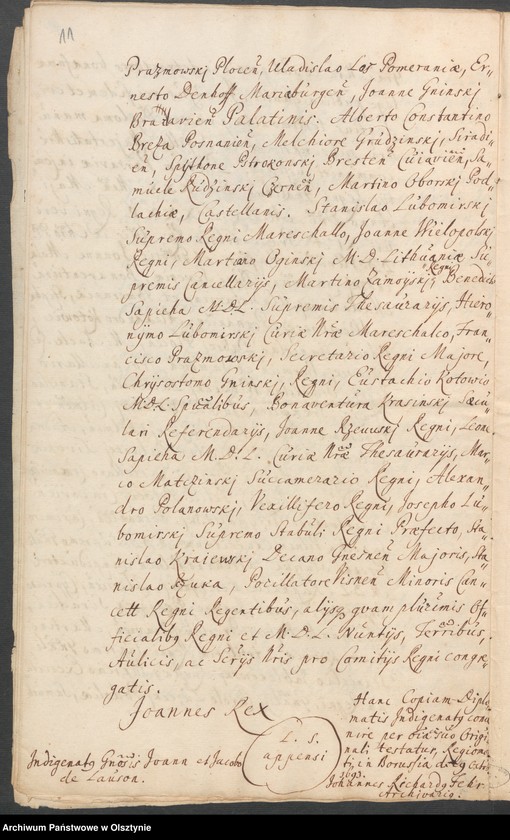 11
Prazmowskj Plocen̄, Uladislao Los Pomeraniæ, Er-
nesto Denhoff Mariæburgen̄, Joanne Gninskj
Palatinis. Alberto Constantino
Breza Posnanien̄, Melchiore Grudzinskj, Siradi-
en̄, Spythone Pstrokonskj Bresten̄ Cuiavien̄, Sa-
muele Rudzinskj Czernen̄, Martino Oborskj Pod-
lachiæ, Castellanis. Stanislao Lubomirskj
Supremo Regni Mareschallo, Joanne Wielopolskj
Regni, Martino Oginskj M.D. Lithuaniæ Su-
premis Cancellarijs, Martino Zamoyskj Regni, Benedicto
Sapieha M.D.L. Supremis Thesaurarijs, Hiero-
nymo Lubomirskj Curiæ Nr̄æ Mareschalco, Fran-
cisco Prazmowskj, Secretario Regni Majore,
Chrysostomo Gninskj, Regni, Eustachio Kotowic
M.D.L. Sp̄ualibus, Bonaventura Krasinskj Sæcu-
lari Referendarijs, Joanne Rzewuskj Regni, Leone
Sapieha M.D.L. Curiæ Nr̄æ Thesaurarijs, Mar-
co Matczinskj Succamerario Regni, Alexan-
dro Polanowskj, Vexillifero Regni, Josepho Lu-
bomirskj Supremo Stabuli Regni Præfecto, Sta-
nislao Krajewskj Decano Gnesnen̄ Majoris, Sta-
nislao Szuka, Pocillatore Visnen̄ Minoris Can-
cell Regni Regentibus, alijsq quam plurimis Of-
ficialibq Regni et M.D.L. Nuntijs, Terr̄ribus,
Aulicis, ac Servis Nr̄is pro Comitijs Regni congre-
gatis.
Joannes Rex
L. S.
appensi
Indigenatq Gn̄osis Joann et Jacobo
de Lauson.
Hanc Copiam Diplo-
matis Indigenatq conve-
nire per suo Origi-
nali testatur, Regiomo-
tij in Borussia
Johannes Richardq Fehr
Archivariq.
Archiwum Państwowe w Olsztynie